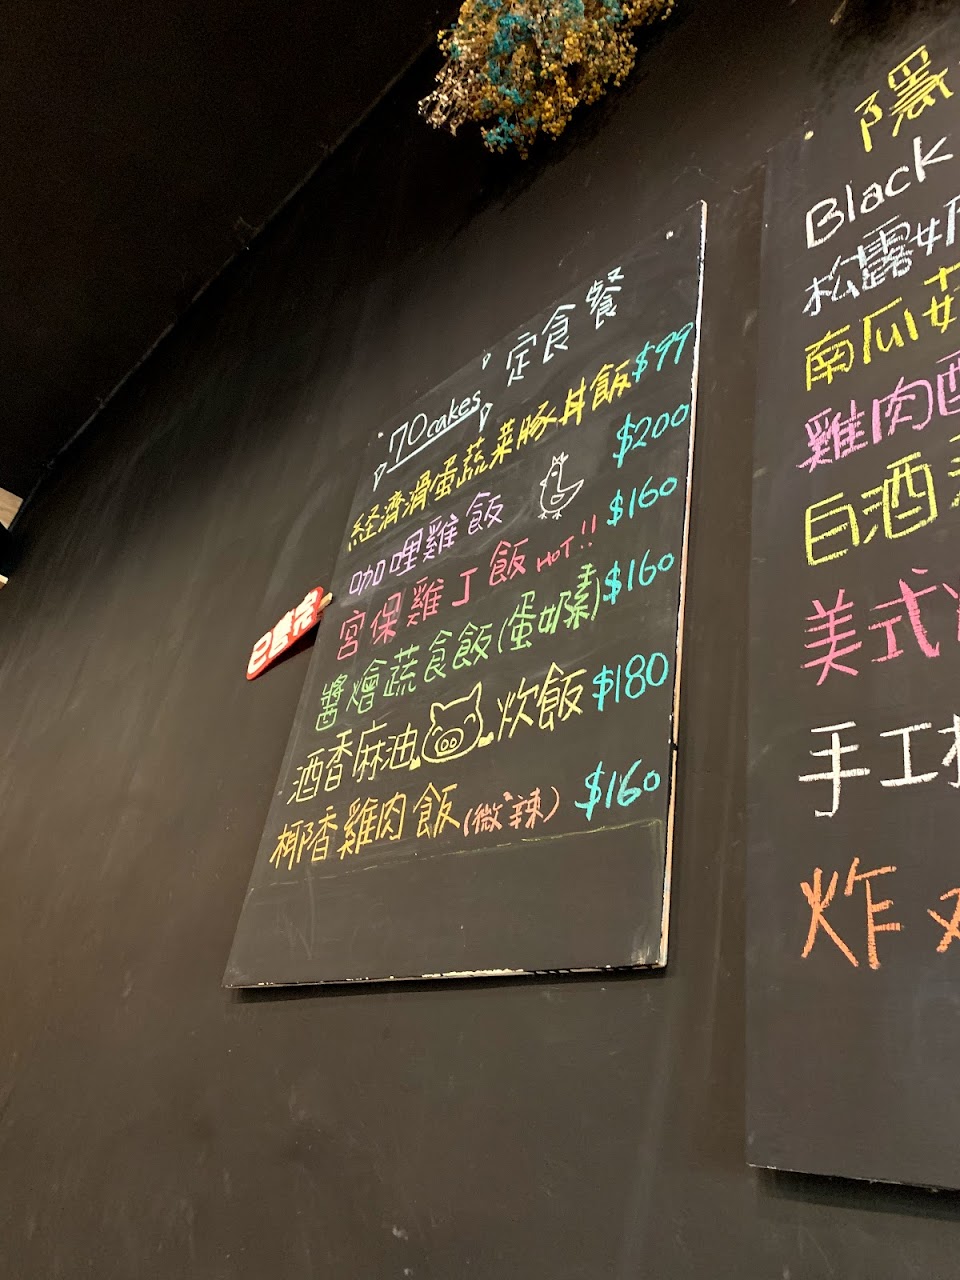 70cakes 定食餐
経濟滑蛋蔬菜豚丼飯$99
咖哩雞飯 $200
宮保雞丁飯HOT!! $160
醬燴蔬食飯(蛋奶素)$160
酒香麻油 炊飯 $180
椰香雞肉飯(微辣) $160
已售完
隱
Black
松露奶
南瓜
雞肉
白酒
美式
手工
炸